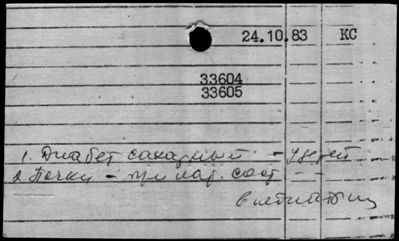 24.10.83 КС
33604
33605
1. Диабет сахарный - у детей
2. Почки - при пат. сост --